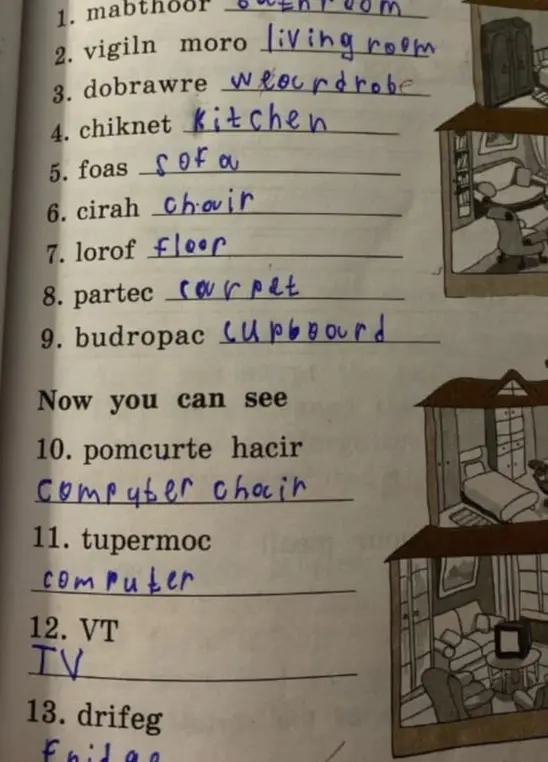 1. mabthoor bathroom
2. vigiln moro living room
3. dobrawre weardrobe
4. chiknet kitchen
5. foas sofa
6. cirah chair
7. lorof floor
8. partec carpet
9. budropac cupboard
Now you can see
10. pomcurte hacir
computer chair
11. tupermoc
computer
12. VT
TV
13. drifeg
fridge